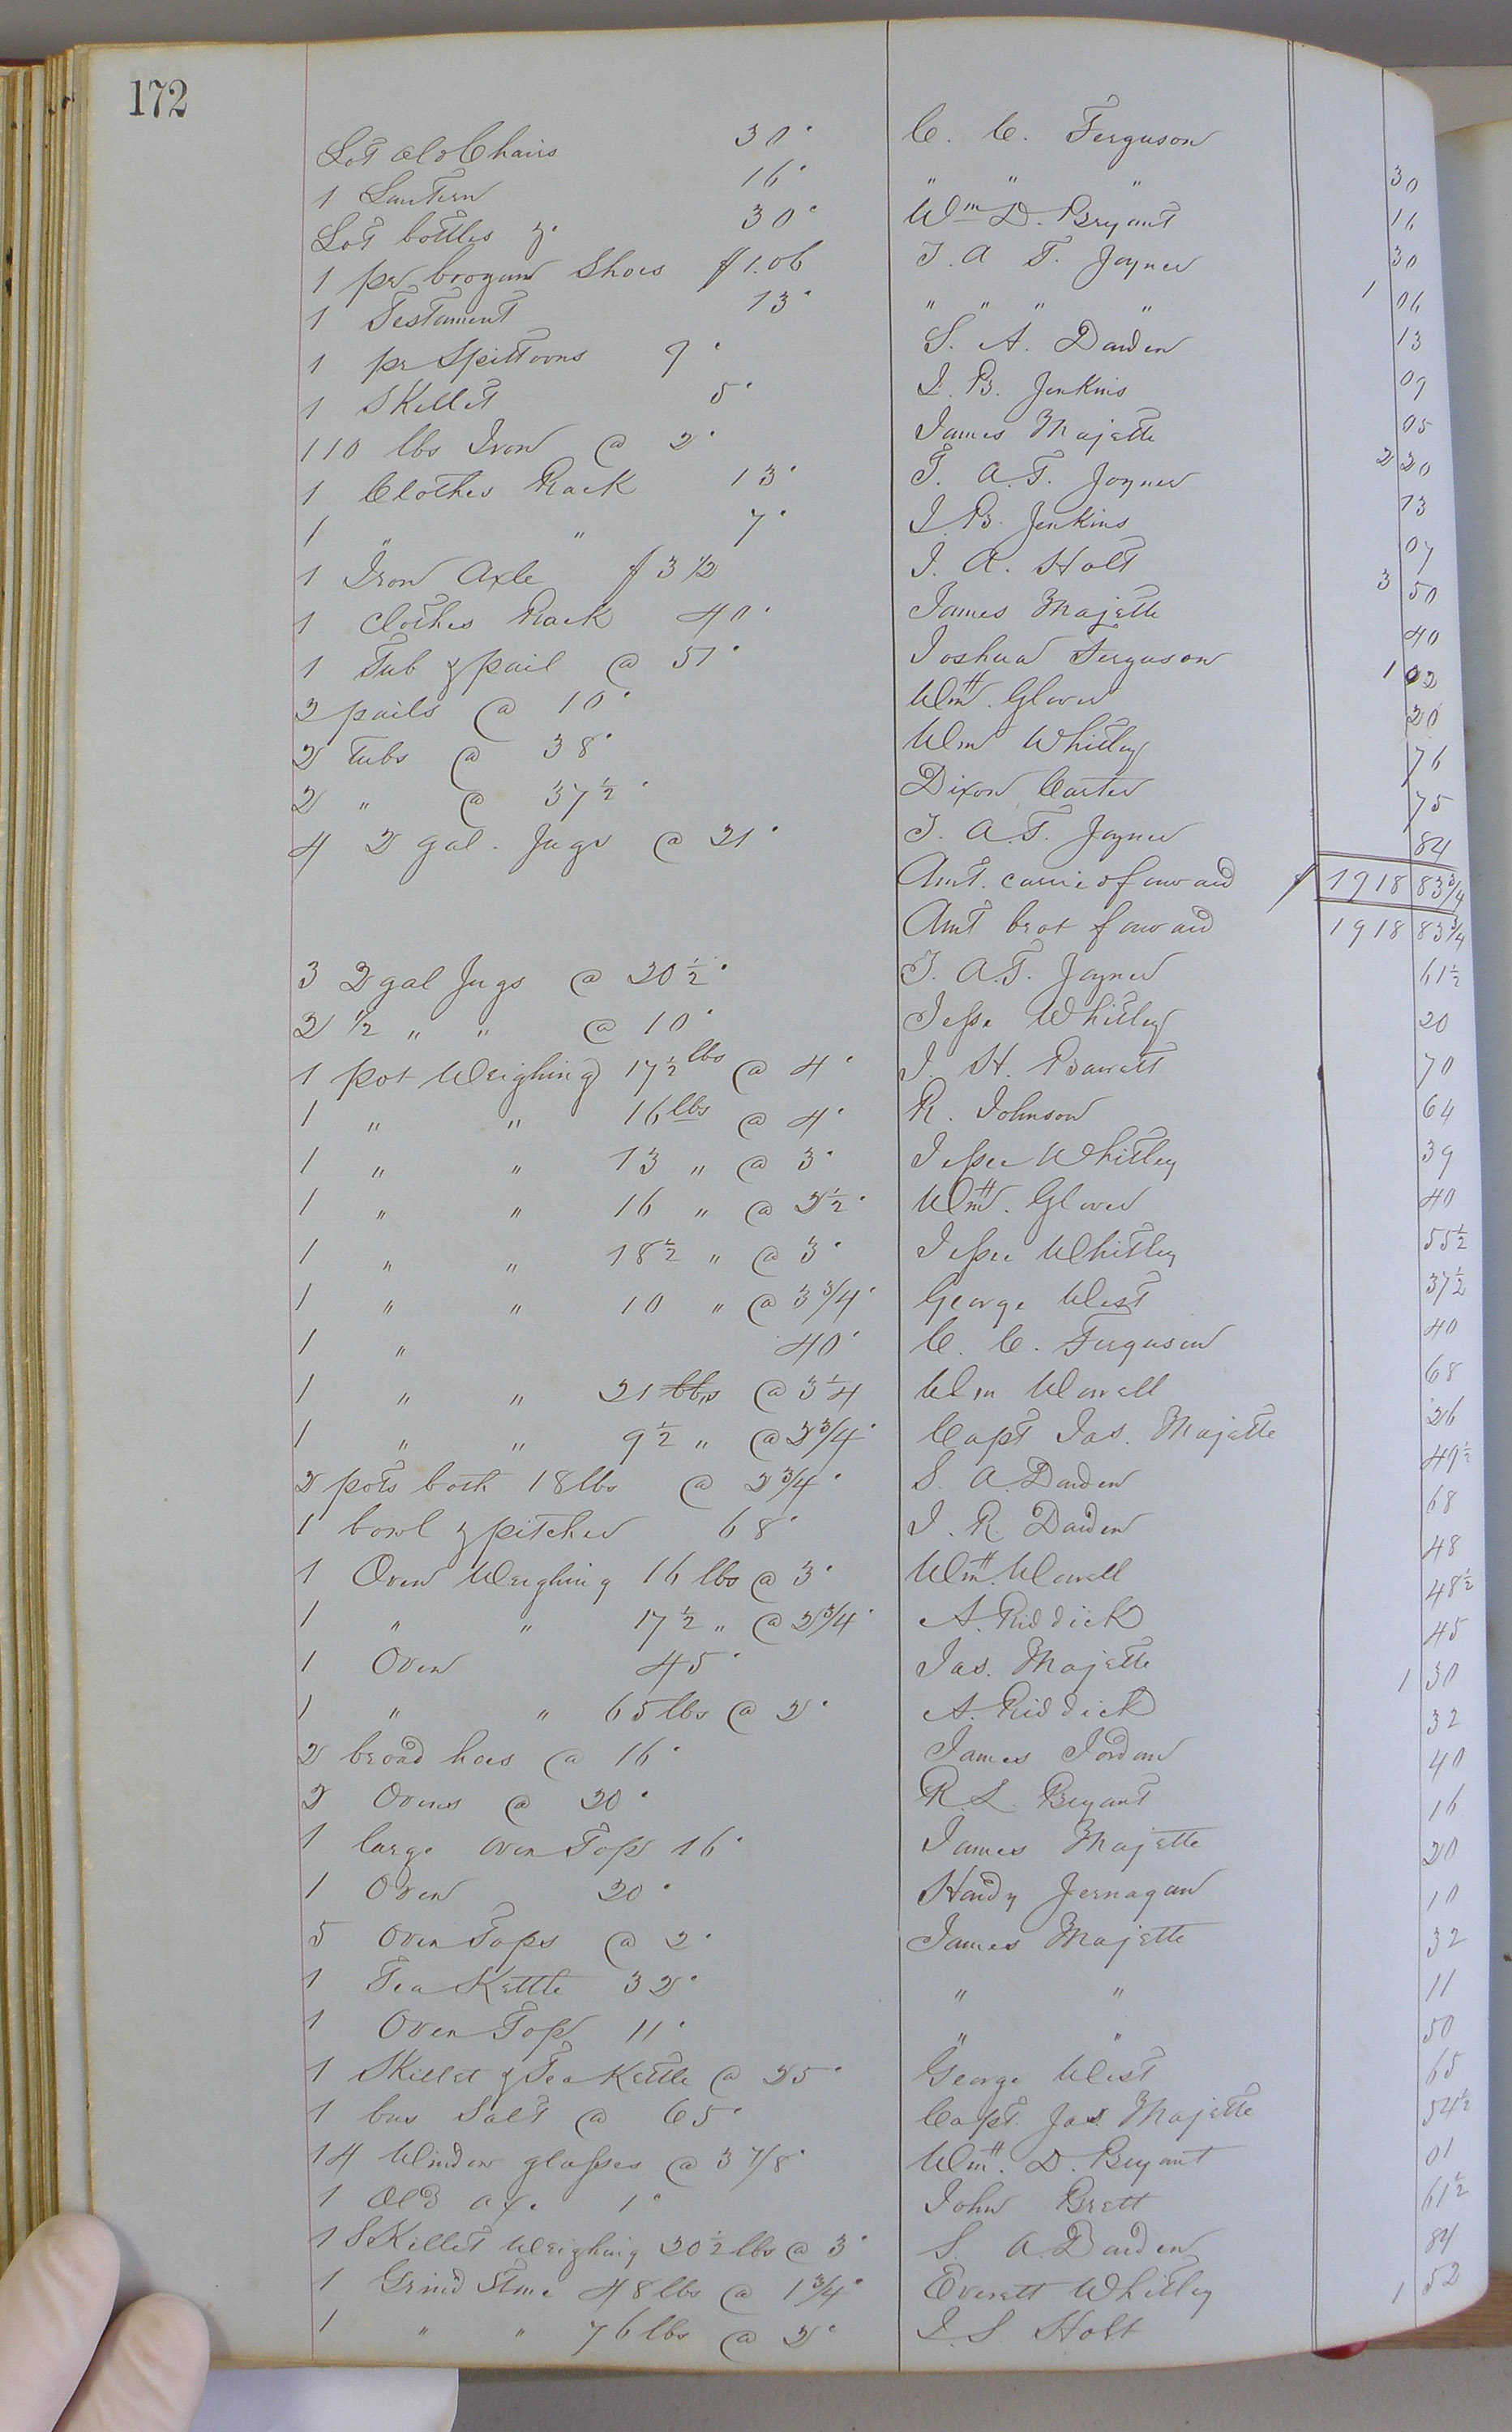 172
Lot old Chairs 30c C. C. Ferguson 30
1 Lantern 16c " " " 16
Lot bottles &c 30c Wm D. Bryant 30
1 pr brogan Shoes $1.06 T. A. T. Joyner 1 06
1 Testament 13c " " " " 13
1 pr Spittoons 9c S. A. Darden 09
1 Skillet 5c J. B. Jenkins 05
110 lbs Iron @ 2c James Majette 2 20
1 Clothes Rack 13c T. A. T. Joyner 13
1 " " 7c J. B. Jenkins 07
1 Iron Axle $3 1/2 J. A. Holt 3 50
1 Clothes Rack 40c James Majette 40
1 Tub & pail @ 51c Joshua Ferguson 1 02
2 pails @ 10c Wm. Glover 20
2 Tubs @ 38c Wm Whitley 76
2 " @ 37 1/2c Dixon Carter 75
4 2 gal. Jugs @ 21c T. A. T. Joyner 84
Amt. carried forward $ 1918 83 3/4
Amt brot forward 1918 83 3/4
3 2 gal Jugs @ 20 1/2c T. A. T. Joyner 61 1/2
2 1/2 " " @ 10c Jesse Whitley 20
1 pot Weighing 17 1/2 lbs @ 4c J. H. Barrett 70
1 " " 16 lbs @ 4c R. Johnson 64
1 " " 13 " @ 3c Jesse Whitley 39
1 " " 16 " @ 2 1/2c Wm. Glover 40
1 " " 18 1/2 " @ 3c Jesse Whitley 55 1/2
1 " " 10 " @ 3 3/4c George West 37 1/2
1 " 40c C. C. Ferguson 40
1 " " 21 lbs @ 3 1/4 Wm Worrell 68
1 " " 9 1/2 " @ 2 3/4c Capt Jas. Majette 26
2 pots both 18 lbs @ 2 3/4c S. A. Darden 49 1/2
1 bowl & pitcher 68c J. R. Darden 68
1 Oven Weighing 16 lbs @ 3c Wm. Worrell 48
1 " " 17 1/2 " @ 2 3/4c A. Riddick 48 1/2
1 Oven 45c Jas. Majette 45
1 " " 65 lbs @ 2c A. Riddick 1 30
2 broad hoes @ 16c James Jordan 32
2 Ovens @ 20c R. L. Bryant 40
1 large oven Top 16c James Majette 16
1 Oven 20c Hardy Jernagan 20
5 Oven Tops @ 2c James Majette 10
1 Tea Kettle 32c " " 32
1 Oven Top 11c " " 11
1 Skillet & Tea Kettle @ 25c George West 50
1 bus Salt @ 65c Capt. Jas. Majette 65
14 Window glasses @ 3 7/8c Wm. D. Bryant 54 1/2
1 Old ax. 1c John Brett 01
1 Skillet Weighing 20 1/2 lbs @ 3c S. A. Darden 61 1/2
1 Grind Stone 48 lbs @ 1 3/4c Everett Whitley 84
1 " " 76 lbs @ 2c J. S. Holt 1 52